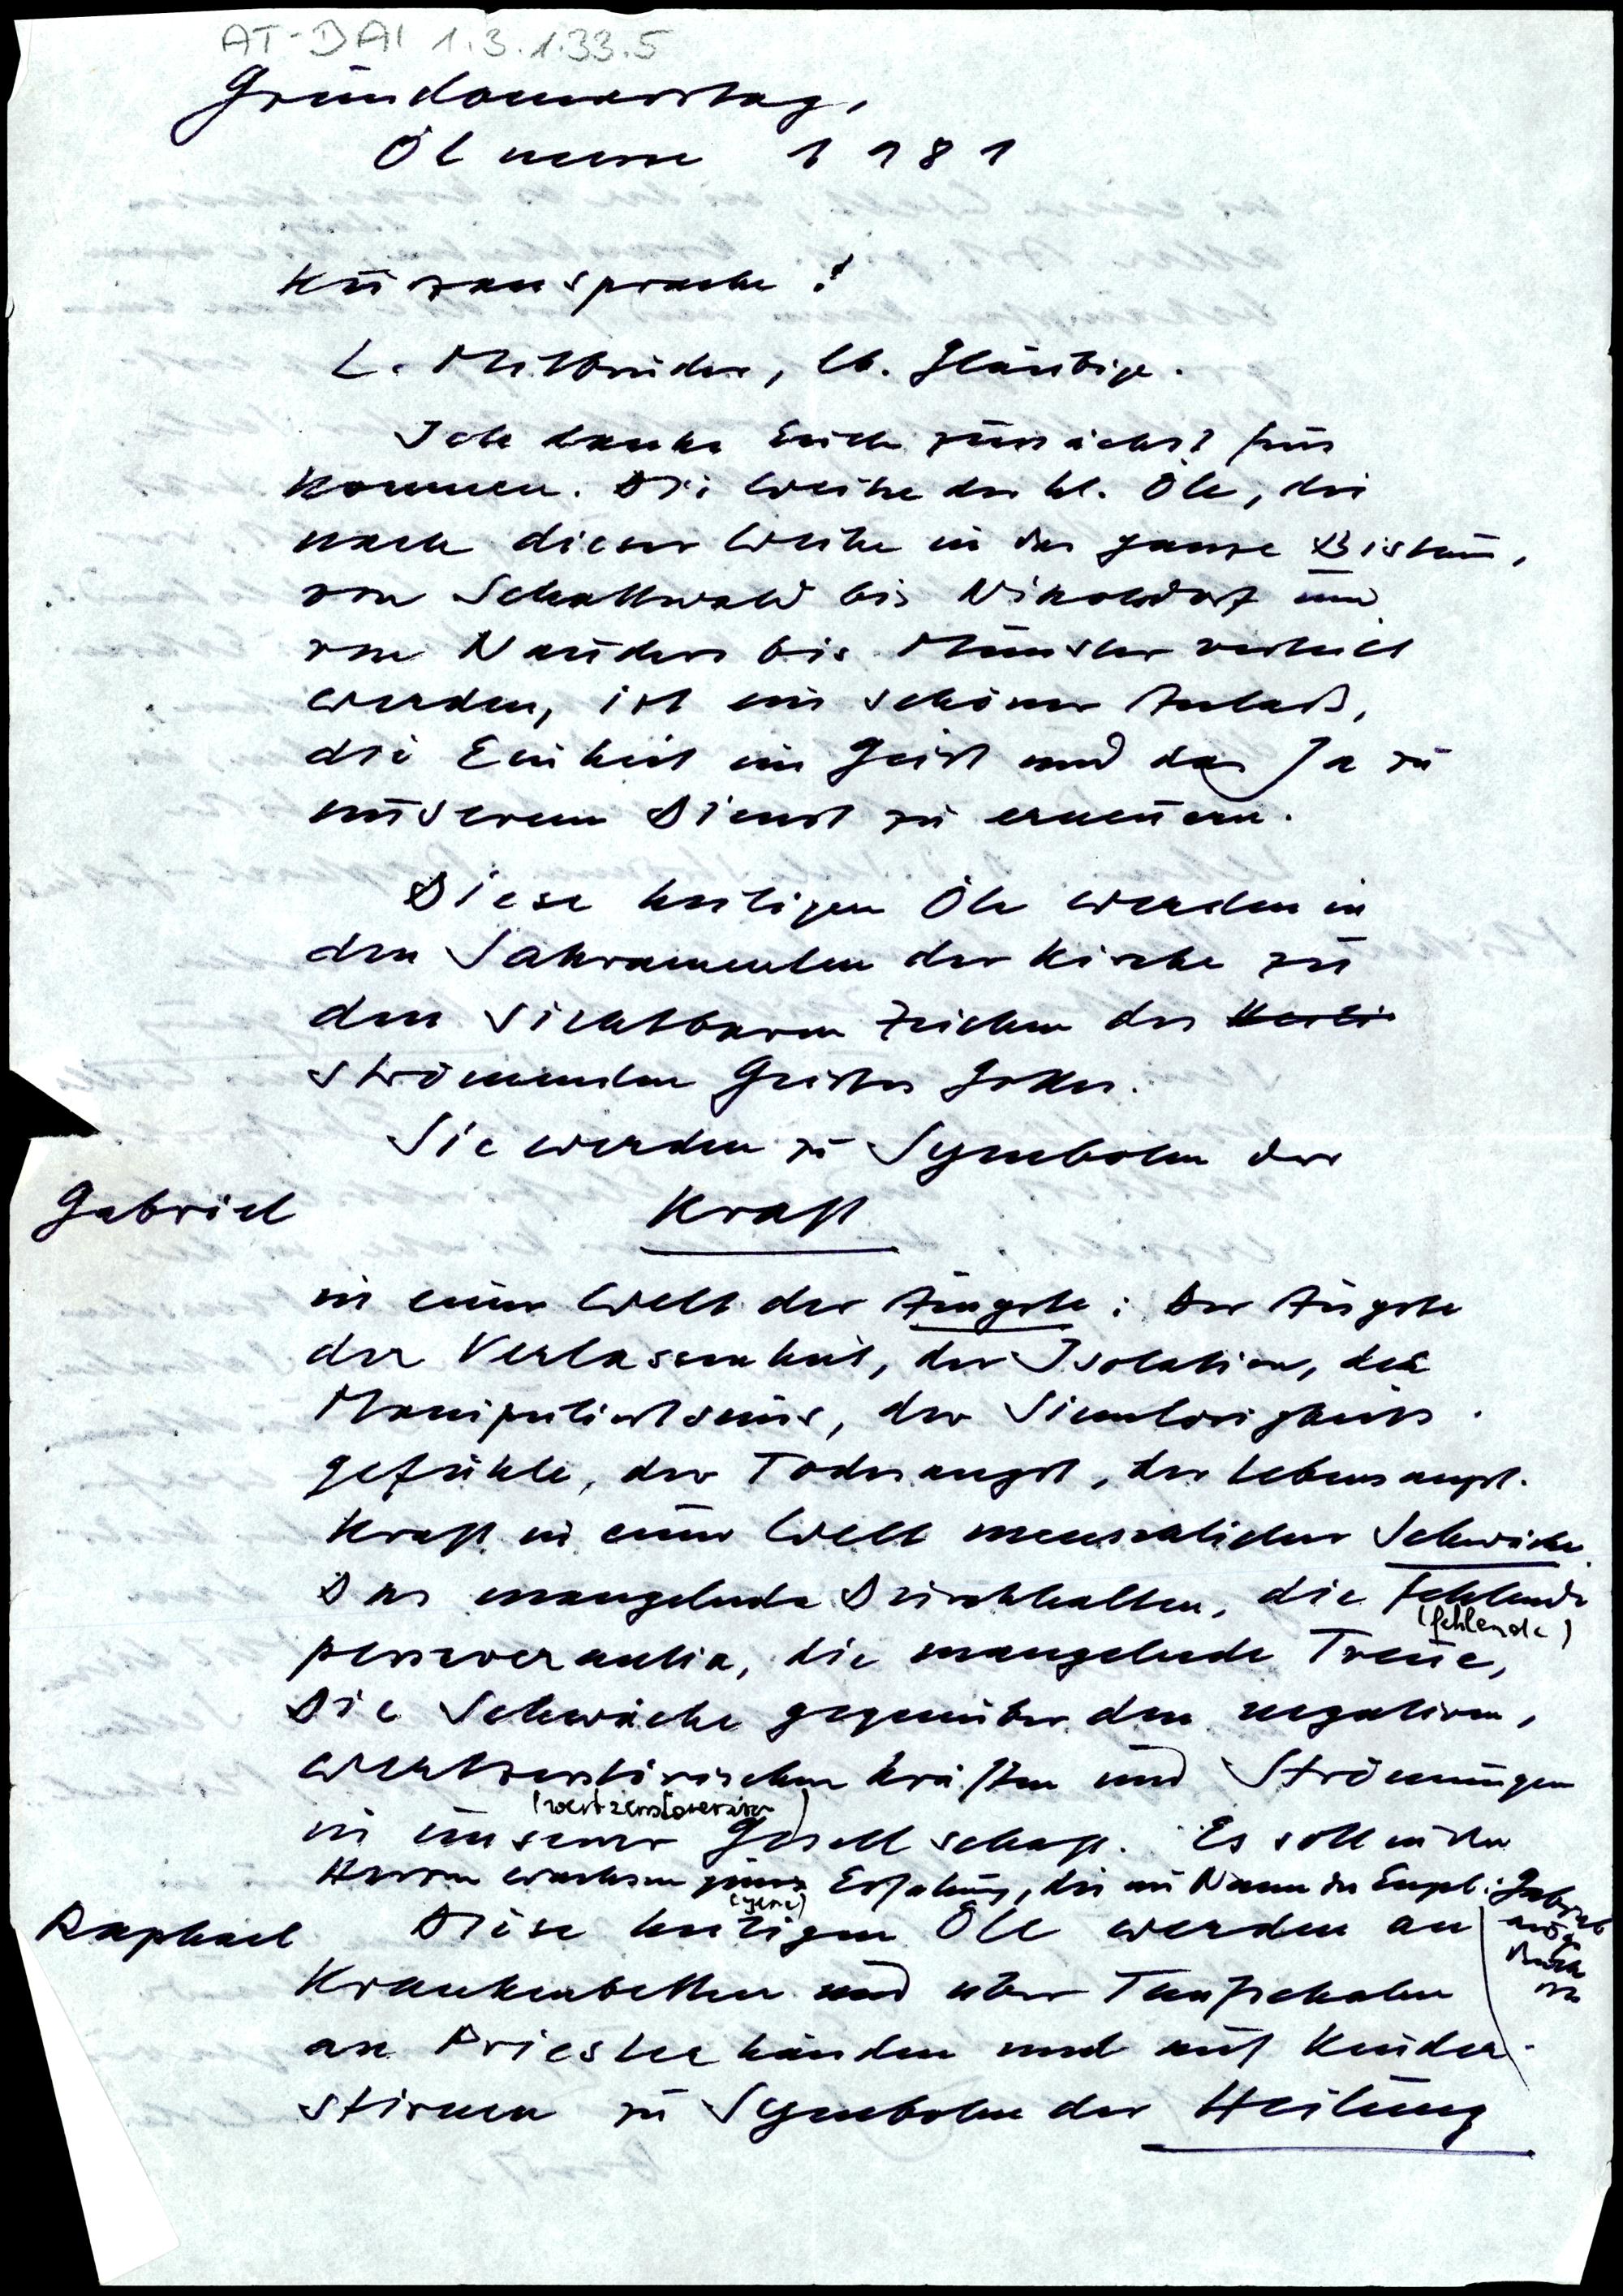 AT-DAI 1.3.1.33.5
Gründonnerstag,
Ölmesse 1981
Kurzansprache!
L. Mitbrüder, lb. Gläubige.
Ich danke Euch zunächst fürs
Kommen. Die Weihe der hl. Öle, die
nach dieser Weihe in das ganze Bistum,
von Schattwald bis Nikolsdorf und
von Nauders bis Münster verteilt
werden, ist ein schöner Anlaß,
die Einheit im Geist und das Ja zu
unserem Dienst zu erneuern.
Diese heiligen Öle werden in
den Sakramenten der Kirche zu
den sichtbaren Zeichen des
strömenden Geistes Gottes.
Sie werden zu Symbolen der
Gabriel Kraft
in einer Welt der Ängste: Der Ängste
der Verlassenheit, der Isolation, des
Manipuliertseins, der Sinnlosigkeits-
gefühle, der Todesangst, der Lebensangst.
Kraft in einer Welt menschlicher Schwäche.
Das mangelnde Durchhalten, die fehlende
(fehlende)
perseverantia, die mangelnde Treue,
Die Schwäche gegenüber den negativen,
wertzerstörerischen Kräften und Strömungen
(wertzerstörerischen)
in unserer Gesellschaft. Es soll in den
Herzen wachsen jene Erfahrung, die im Namen des Engels Gabriel
(jene)
Raphael Diese heiligen Öle werden an
Krankenbetten und über Taufschalen
an Priesterhänden und auf Kinder-
stirnen zu Symbolen der Heilung